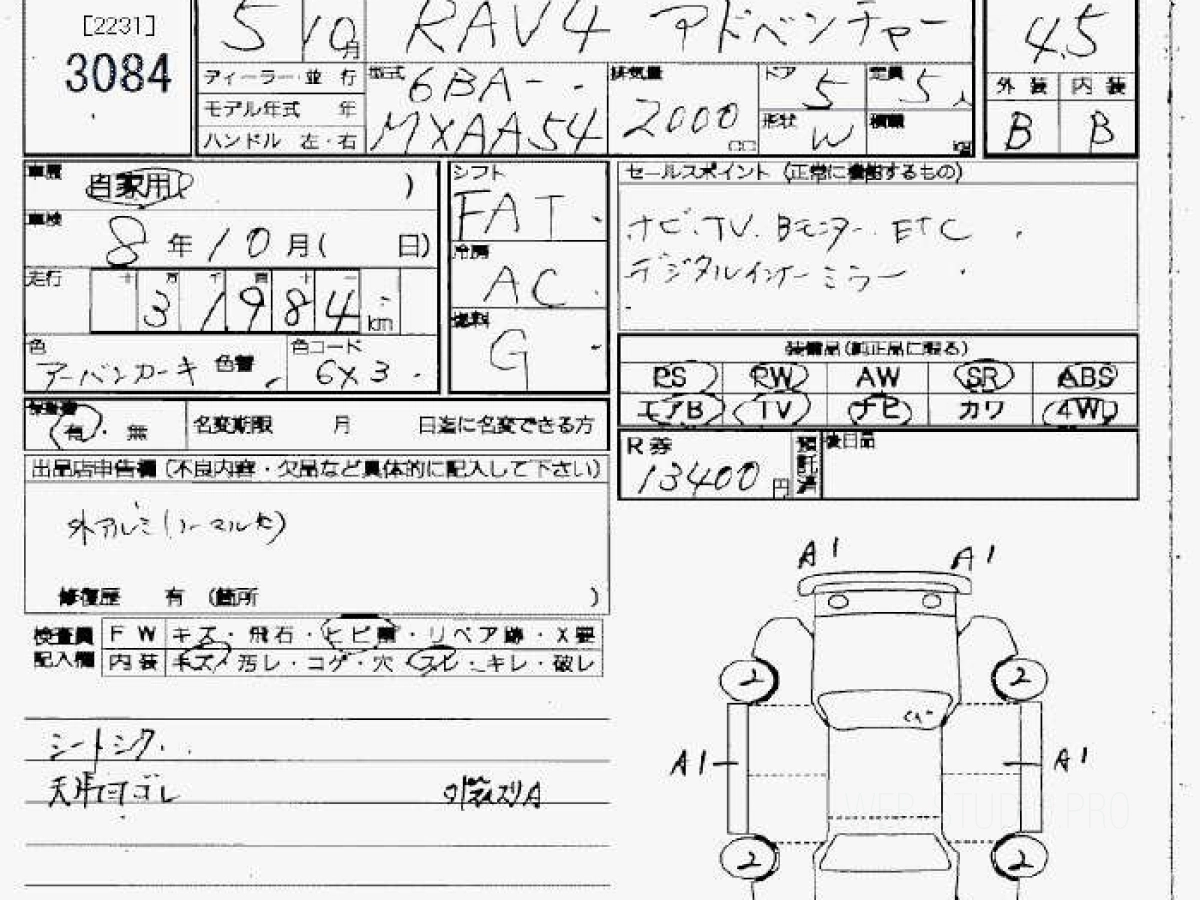 [2231]
3084
5 10月 RAV4 アドベンチャー
ディーラー・並 行
モデル年式 年
ハンドル 左・右
型式 6BA-
MXAA54
排気量 2000 cc
ドア 5 定員 5人
形状 W 積載 kg
4.5
外 装 内 装
B B
車歴 自家用 )
車検 8年10月( 日)
走行 十 万 千 百 十 一
31984 km
色 アーバンカーキ 色替
色コード 6X3
シフト FAT
冷房 AC
燃料 G
セールスポイント (正常に機能するもの)
ナビ.TV.Bモニター.ETC
デジタルインナーミラー
装備品(純正品に限る)
PS PW AW SR ABS
エアB TV ナビ カワ 4WD
有・無 名変期限 月 日迄に名変できる方
R券 13400円 預託済
後日品
出品店申告欄(不良内容・欠品など具体的に記入して下さい)
外アルミ(ノーマル欠)
修復歴 有 (箇所 )
検査員記入欄
FW キズ・飛石・ヒビ・リペア跡・X要
内装 キズ・汚レ・コゲ・穴・スレ・キレ・破レ
シートシワ
天井凹ゴレ
A1 A1
2 2
A1 A1
2 2
WEB STUDIO PRO